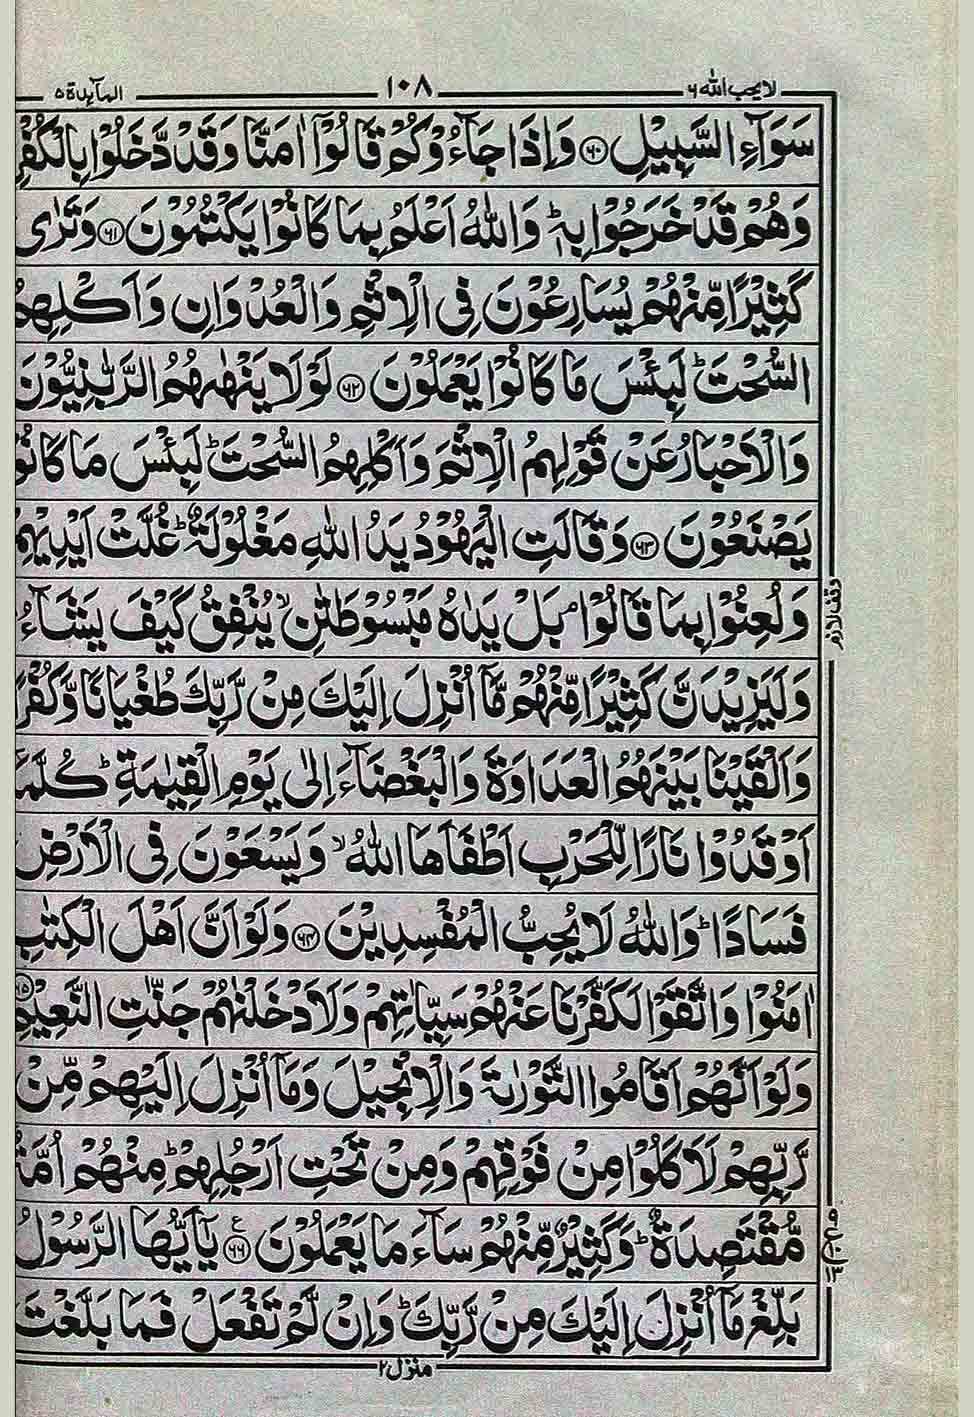 لا یحب اللہ ۶ ۱۰۸ المآىِٕدة ۵
سَوَآءِ السَّبِیْلِ ﴿۶۰﴾ وَاِذَا جَآءُوْكُمْ قَالُوْۤا اٰمَنَّا وَقَدْ دَّخَلُوْا بِالْكُفْرِ
وَهُمْ قَدْ خَرَجُوْا بِهٖ ؕ وَاللّٰهُ اَعْلَمُ بِمَا كَانُوْا یَكْتُمُوْنَ ﴿۶۱﴾ وَتَرٰی
كَثِیْرًا مِّنْهُمْ یُسَارِعُوْنَ فِی الْاِثْمِ وَالْعُدْوَانِ وَاَكْلِهِمُ
السُّحْتَ ؕ لَبِئْسَ مَا كَانُوْا یَعْمَلُوْنَ ﴿۶۲﴾ لَوْلَا یَنْهٰىهُمُ الرَّبّٰنِیُّوْنَ
وَالْاَحْبَارُ عَنْ قَوْلِهِمُ الْاِثْمَ وَاَكْلِهِمُ السُّحْتَ ؕ لَبِئْسَ مَا كَانُوْا
یَصْنَعُوْنَ ﴿۶۳﴾ وَقَالَتِ الْیَهُوْدُ یَدُ اللّٰهِ مَغْلُوْلَةٌ ؕ غُلَّتْ اَیْدِیْهِمْ
وَلُعِنُوْا بِمَا قَالُوْا ۘ بَلْ یَدٰهُ مَبْسُوْطَتٰنِ ۙ یُنْفِقُ كَیْفَ یَشَآءُ
وقف لازم
وَلَیَزِیْدَنَّ كَثِیْرًا مِّنْهُمْ مَّاۤ اُنْزِلَ اِلَیْكَ مِنْ رَّبِّكَ طُغْیَانًا وَّكُفْرًا
وَاَلْقَیْنَا بَیْنَهُمُ الْعَدَاوَةَ وَالْبَغْضَآءَ اِلٰی یَوْمِ الْقِیٰمَةِ ؕ كُلَّمَاۤ
اَوْقَدُوْا نَارًا لِّلْحَرْبِ اَطْفَاَهَا اللّٰهُ ۙ وَیَسْعَوْنَ فِی الْاَرْضِ
فَسَادًا ؕ وَاللّٰهُ لَا یُحِبُّ الْمُفْسِدِیْنَ ﴿۶۴﴾ وَلَوْ اَنَّ اَهْلَ الْكِتٰبِ
اٰمَنُوْا وَاتَّقَوْا لَكَفَّرْنَا عَنْهُمْ سَیِّاٰتِهِمْ وَلَاَدْخَلْنٰهُمْ جَنّٰتِ النَّعِیْمِ ﴿۶۵﴾
وَلَوْ اَنَّهُمْ اَقَامُوا التَّوْرٰىةَ وَالْاِنْجِیْلَ وَمَاۤ اُنْزِلَ اِلَیْهِمْ مِّنْ
رَّبِّهِمْ لَاَكَلُوْا مِنْ فَوْقِهِمْ وَمِنْ تَحْتِ اَرْجُلِهِمْ ؕ مِنْهُمْ اُمَّةٌ
مُّقْتَصِدَةٌ ؕ وَكَثِیْرٌ مِّنْهُمْ سَآءَ مَا یَعْمَلُوْنَ ﴿۶۶﴾ ع یٰۤاَیُّهَا الرَّسُوْلُ
بَلِّغْ مَاۤ اُنْزِلَ اِلَیْكَ مِنْ رَّبِّكَ ؕ وَاِنْ لَّمْ تَفْعَلْ فَمَا بَلَّغْتَ
منزل ۲